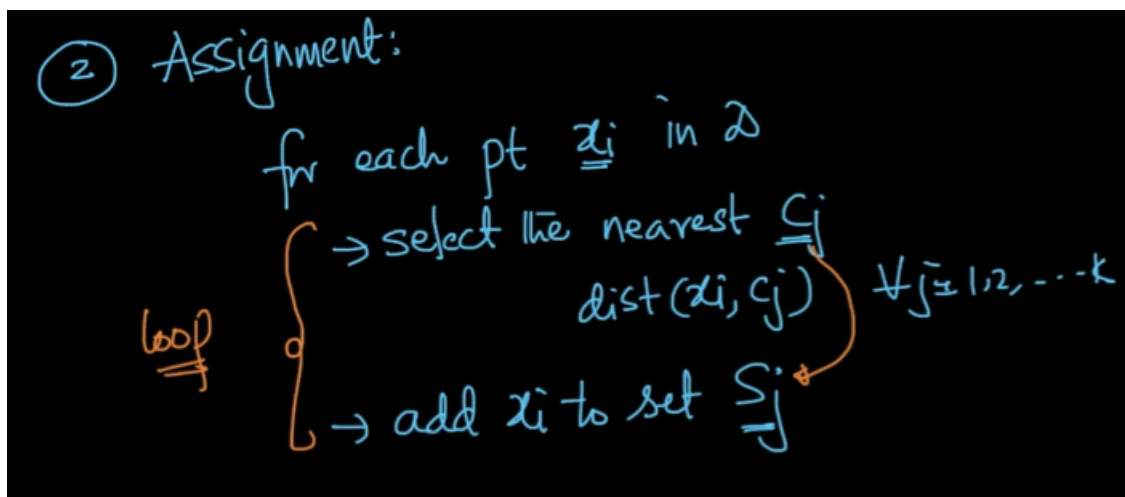 2 Assignment:
for each pt xi in D
→ select the nearest Cj
dist(xi, cj) ∀ j=1,2, ----k
loop
→ add xi to set Sj